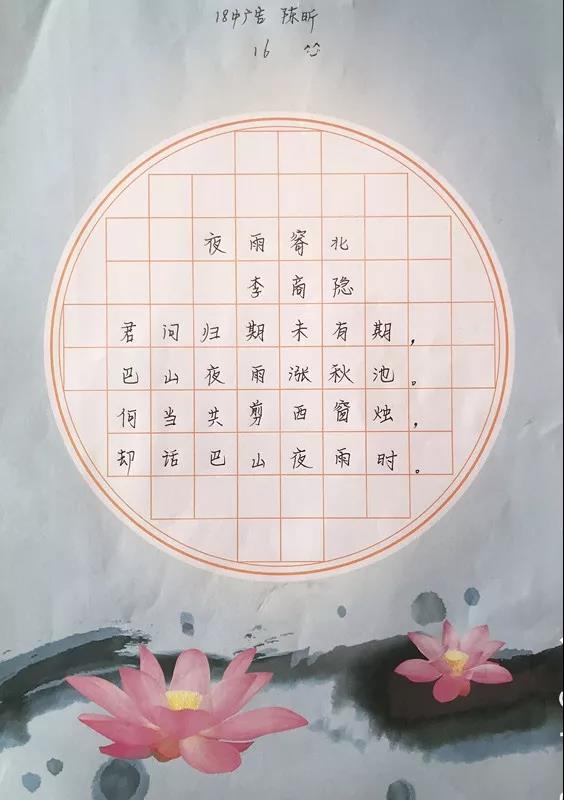 18中广告 陈昕
16
夜雨寄北
李商隐
君问归期未有期，
巴山夜雨涨秋池。
何当共剪西窗烛，
却话巴山夜雨时。